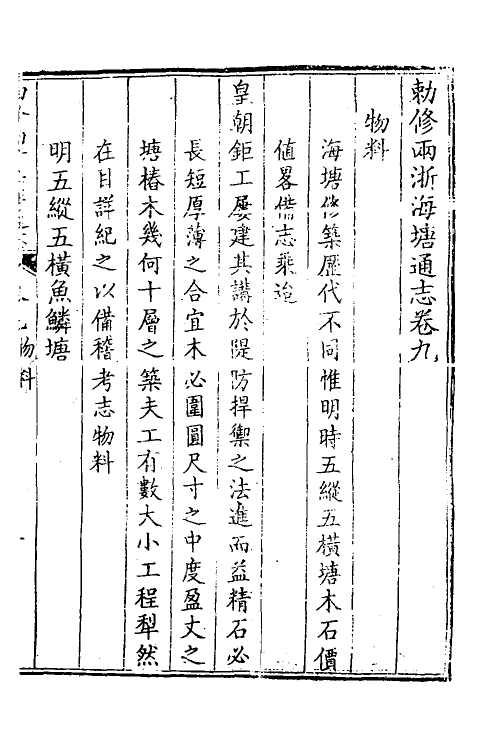 勅修兩浙海塘通志卷九
物料
海塘修築歷代不同惟明時五縱五橫塘木石價
値畧備志乘迨
皇朝鉅工屢建其講於隄防捍禦之法進而益精石必
長短厚薄之合宜木必圍圓尺寸之中度盈丈之
塘樁木幾何十層之築夫工有數大小工程犁然
在目詳紀之以備稽考志物料
明五縱五橫魚鱗塘
物料